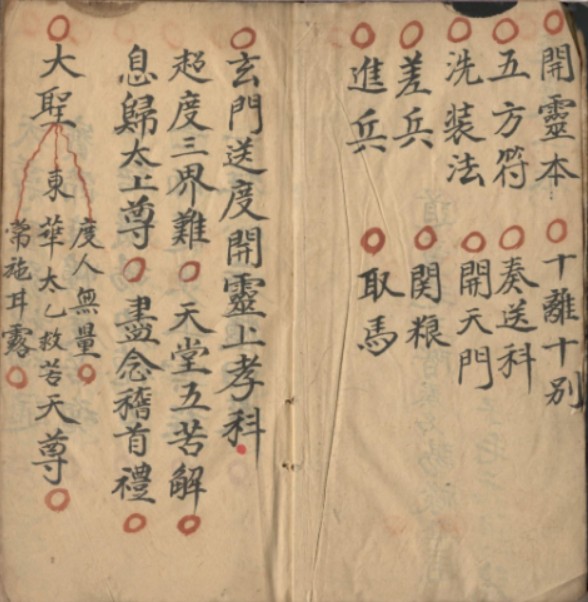 開靈本 十離十別
五方符 奏送科
洗装法 開天門
差兵 関粮
進兵 取馬
玄門送度開靈上孝科
超度三界難 天堂五苦解
息歸太上尊 盡念稽首禮
度人無量
大聖東華太乙救苦天尊
常施耳露